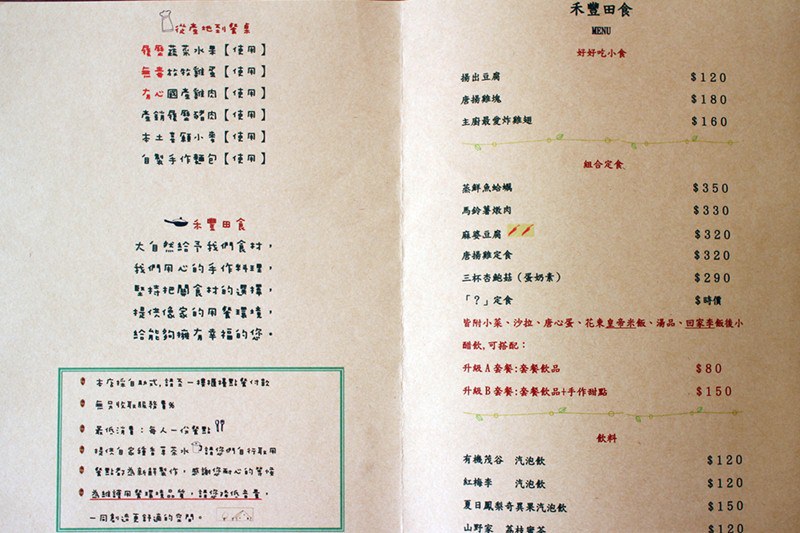 從產地到餐桌
履歷蔬菜水果【使用】
無毒放牧雞蛋【使用】
有心國產雞肉【使用】
產銷履歷豬肉【使用】
本土喜願小麥【使用】
自製手作麵包【使用】
禾豐田食
大自然給予我們食材，
我們用心的手作料理，
堅持把關食材的選擇，
提供像家的用餐環境，
給能夠擁有幸福的您。
本店採自助式,請至一樓櫃檯點餐付款
無另收取服務費%
最低消費:每人一份餐點
提供自家種香草茶水 請您們自行取用
餐點都為新鮮製作,感謝您耐心的等候
為維護用餐環境品質,請您降低音量,
一同創造更舒適的空間。
禾豐田食
MENU
好好吃小食
揚出豆腐 $120
唐揚雞塊 $180
主廚最愛炸雞翅 $160
組合定食
蒸鮮魚蛤蠣 $350
馬鈴薯燉肉 $330
麻婆豆腐 $320
唐揚雞定食 $320
三杯杏鮑菇（蛋奶素） $290
「？」定食 $時價
皆附小菜、沙拉、唐心蛋、花東皇帝米飯、湯品、回家季飯後小
醋飲,可搭配：
升級A套餐:套餐飲品 $80
升級B套餐:套餐飲品+手作甜點 $150
飲料
有機茂谷 汽泡飲 $120
紅梅李 汽泡飲 $120
夏日鳳梨奇異果汽泡飲 $150
山野家 荔枝蜜茶 $120